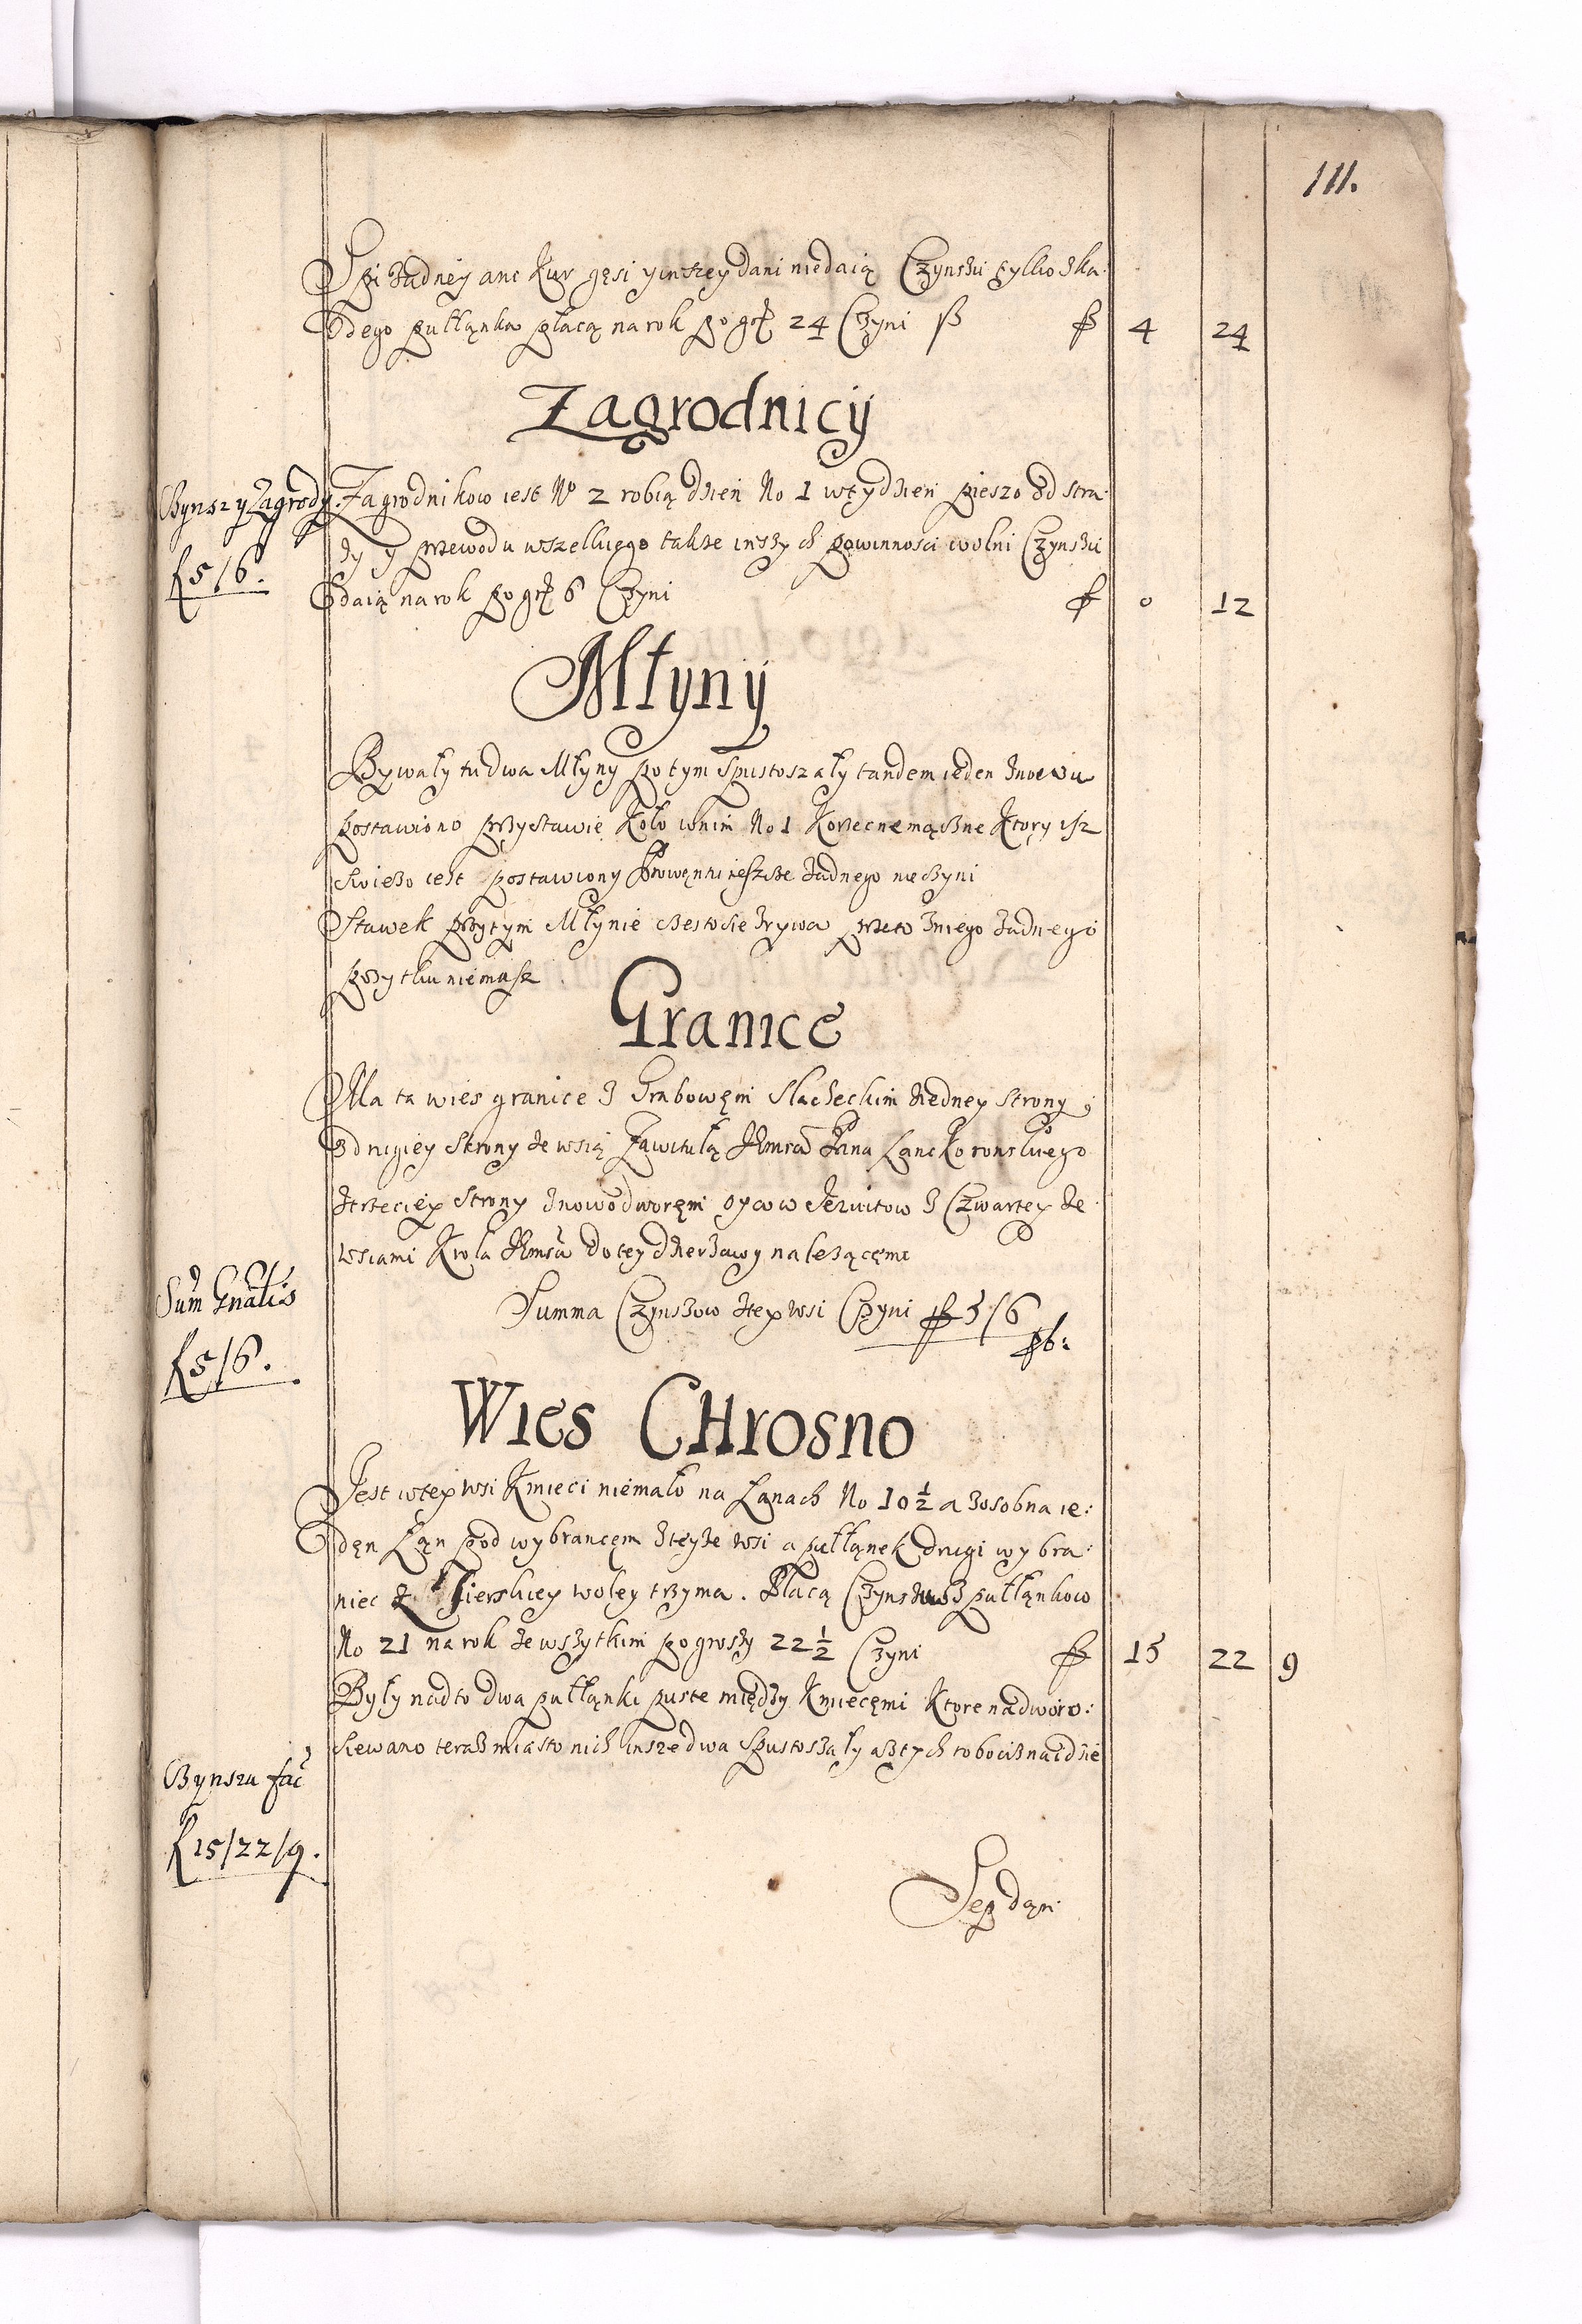 111.
Spi żadney ani kur gęsi y inszey dani niedaią Czynszu tylko zka:
żdego pułłanka płacą na rok po grß 24 Czyni ß fl 4 24
Zagrodnicy
Czynsz y Zagrody.
f 5/6.
Zagrodnikow iest No 2 robią dzień No 1 w tydzień pieszo od stra:
ży y przewodu wszelkiego także inszych powinnosci wolni Czynszu
daią na rok po grß 6 Czyni fl 0 12
Młyny
Bywały tu dwa Młyny potym spustoszały tandem ieden znowu
postawiono przy stawie koło w nim No 1 Korzecznemączne Ktory isz
swieżo iest postawiony Prowentu ieszcze żadnego nieczyni
Stawek przy tym Młynie czesto sie zrywa przeto zniego żadnego
pożytku niemasz
Granice
Ma ta wies granice z Grabowęm Slacheckim z iedney strony,
z drugiey strony ze wsią Zawitałą JEmści Pana Lanckoronskiego
z trzeciey strony z nowodworęm oycow Jezuitow z Czwartey ze
wsiami Krola JEmsci do tey dzierżawy należącęmi
Sum̃ Gnãlis
f 5/6.
Summa Czynszow z tey wsi Czyni fl 5/6
pb:
Wies CHrosno
Jest w tey wsi Kmieci niemało na Łanach No 10 ½ a zosobna ie:
dęn Łan pod wybrancęm z teyże wsi a pułłanek drugi wybra:
niec z Zierskiey woley trzyma. Płacą Czynszu z pułłankow
No 21 na rok ze wszytkim po groszy 22 ½ Czyni fl 15 22 9
Były nadto dwa pułłanki puste między Kmiecęmi Ktore na dwor o:
siewano teraz miasto nich insze dwa spustoszały a z tych robocizna idzie
Czynszu fac
f 15/22/9.
Sep dan